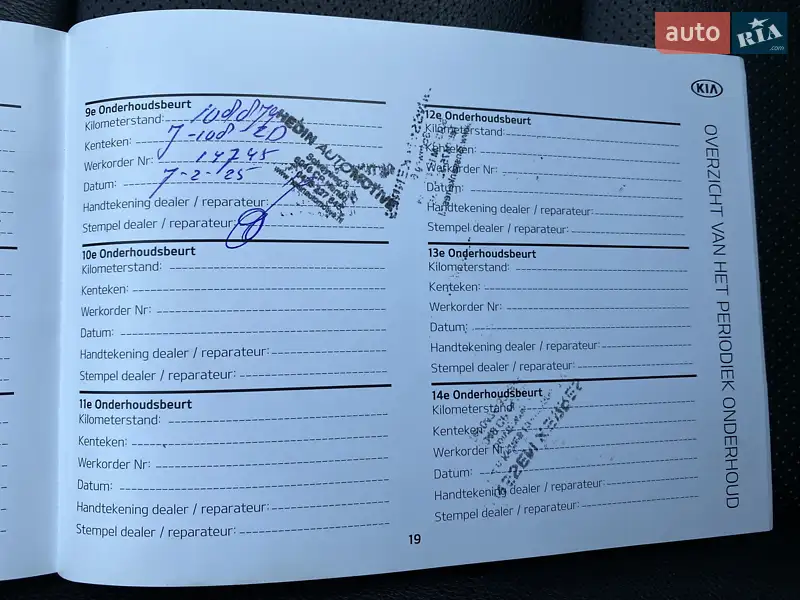 auto RIA .com
KIA
OVERZICHT VAN HET PERIODIEK ONDERHOUD
9e Onderhoudsbeurt
Kilometerstand:
Kenteken:
Werkorder Nr: 14745
Datum: 7-2-25
Handtekening dealer / reparateur:
Stempel dealer / reparateur:
HEDIN AUTOMOTIVE
10e Onderhoudsbeurt
Kilometerstand:
Kenteken:
Werkorder Nr:
Datum:
Handtekening dealer / reparateur:
Stempel dealer / reparateur:
11e Onderhoudsbeurt
Kilometerstand:
Kenteken:
Werkorder Nr:
Datum:
Handtekening dealer / reparateur:
Stempel dealer / reparateur:
12e Onderhoudsbeurt
Kilometerstand:
Kenteken:
Werkorder Nr:
Datum:
Handtekening dealer / reparateur:
Stempel dealer / reparateur:
13e Onderhoudsbeurt
Kilometerstand:
Kenteken:
Werkorder Nr:
Datum:
Handtekening dealer / reparateur:
Stempel dealer / reparateur:
14e Onderhoudsbeurt
Kilometerstand:
Kenteken:
Werkorder Nr:
Datum:
Handtekening dealer / reparateur:
Stempel dealer / reparateur:
19